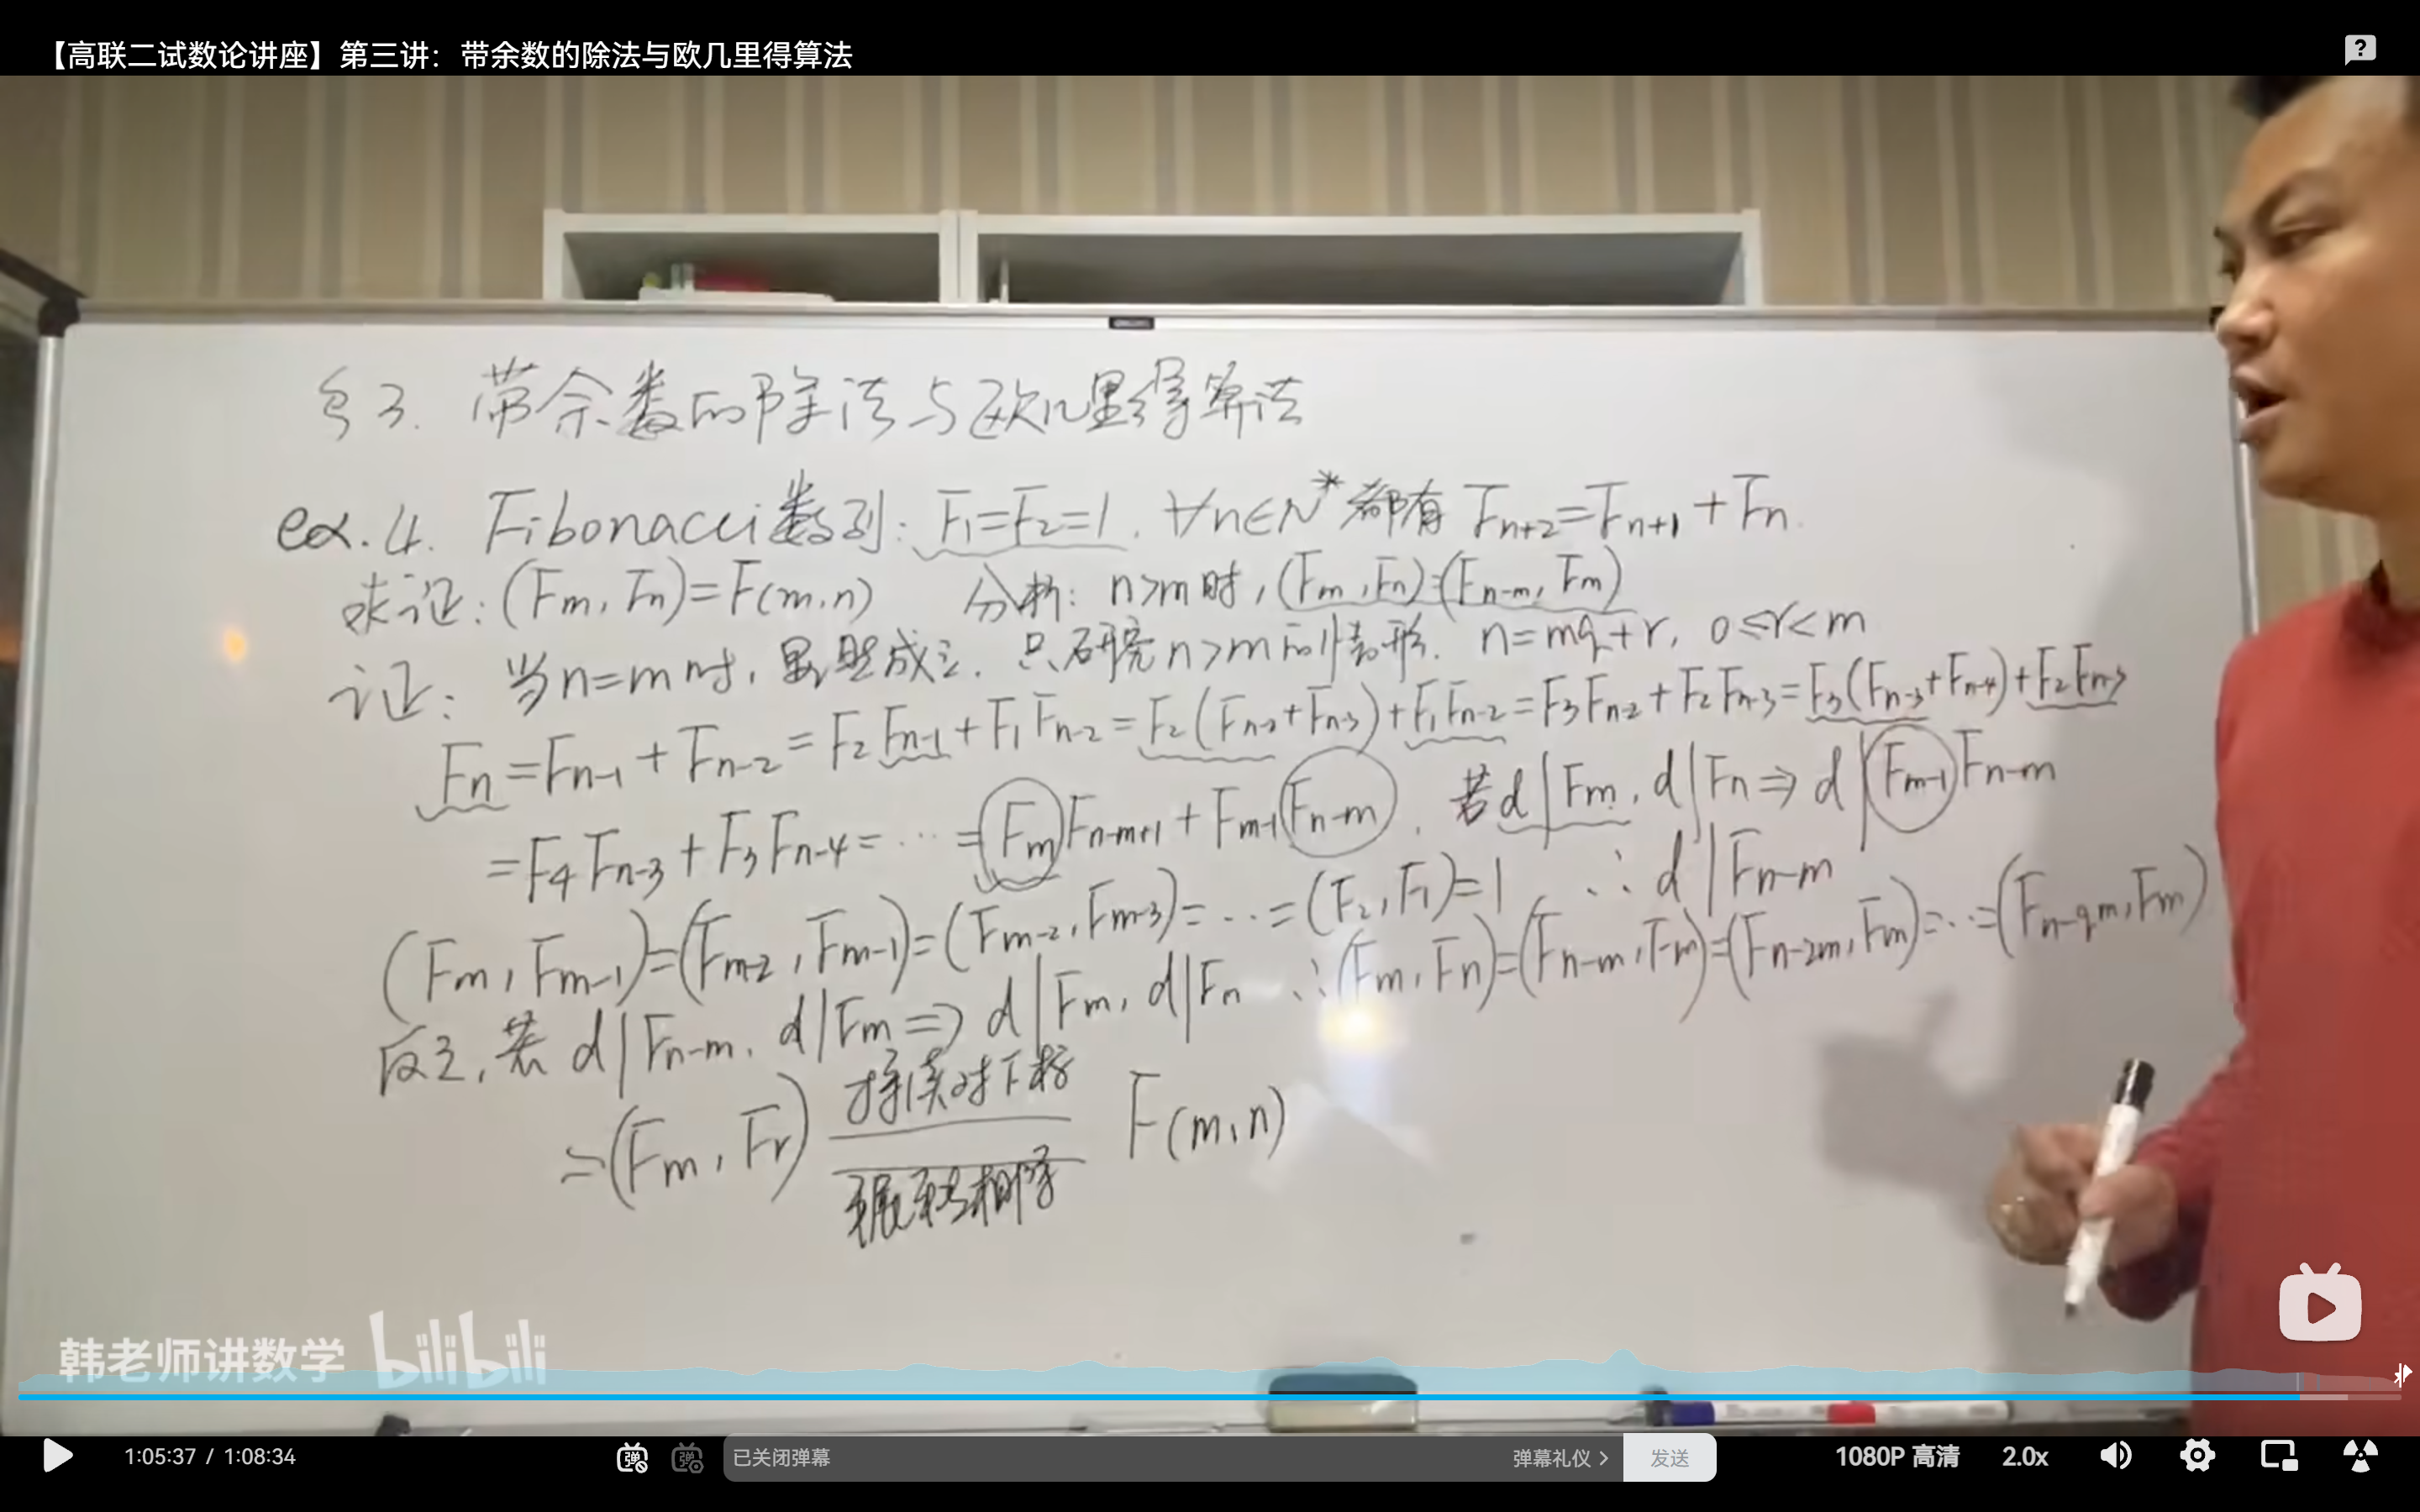 【高联二试数论讲座】第三讲：带余数的除法与欧几里得算法
§3. 带余数的除法与欧几里得算法
ex.4. Fibonacci数列: F₁=F₂=1. ∀n∈N* 都有 Fₙ₊₂=Fₙ₊₁+Fₙ.
求证: (Fm, Fn)=F(m,n) 分析: n>m时, (Fm, Fn)=(Fn-m, Fm)
证: 当n=m时, 显然成立. 只研究n>m的情形. n=mq+r, 0≤r<m
Fn=Fn-1+Fn-2=F₂Fn-1+F₁Fn-2=F₂(Fn-2+Fn-3)+F₁Fn-2=F₃Fn-2+F₂Fn-3=F₃(Fn-3+Fn-4)+F₂Fn-3
=F₄Fn-3+F₃Fn-4=⋯=FmFn-m+1+Fm-1Fn-m. 若d|Fm, d|Fn⇒d|Fm-1Fn-m
(Fm, Fm-1)=(Fm-2, Fm-1)=(Fm-2, Fm-3)=⋯=(F₂, F₁)=1 ∴d|Fn-m
反之, 若 d|Fn-m, d|Fm⇒d|Fm, d|Fn ∴(Fm, Fn)=(Fn-m, Fm)=(Fn-2m, Fm)=⋯=(Fn-qm, Fm)
=(Fm, Fr) 持续对下标 辗转相除 F(m,n)
韩老师讲数学 bilibili
1:05:37 / 1:08:34 弹 弹 已关闭弹幕 弹幕礼仪 > 发送 1080P 高清 2.0x